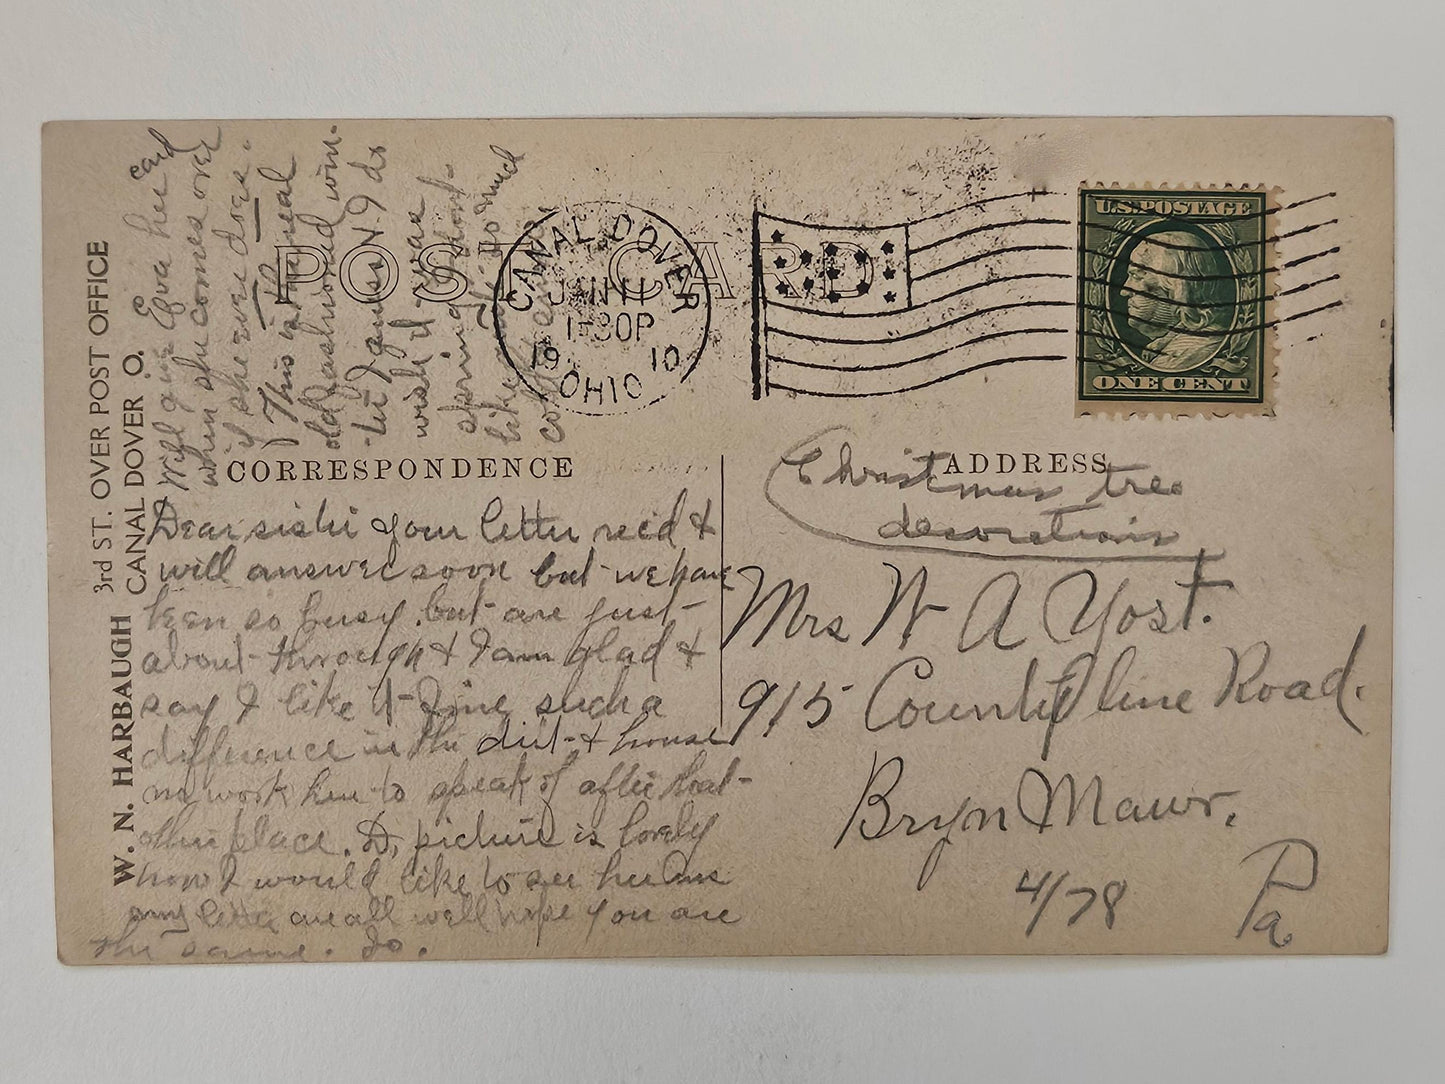 W. N. HARBAUGH
3rd ST. OVER POST OFFICE
CANAL DOVER O.
POST CARD
CANAL DOVER
JAN 11
1-30P
1910
OHIO
U.S. POSTAGE
ONE CENT
CORRESPONDENCE
ADDRESS
Will give Eva her card
when she comes over
if she ever does.
This is the real
old fashioned win-
ter Jan 9 do
wish it was
spring don't
like so much
cold
Dear sister your letter rec'd &
will answer soon but we have
been so busy. but are just
about through & I am glad &
say I like it fine such a
difference in the dirt & house
no work here to speak of after that
other place. D, picture is lovely
how I would like to see her
my letter are all well hope you are
the same. Jo.
Christmas tree
decorations
Mrs W A Yost.
915 County line Road.
Bryn Mawr.
Pa.
4/78